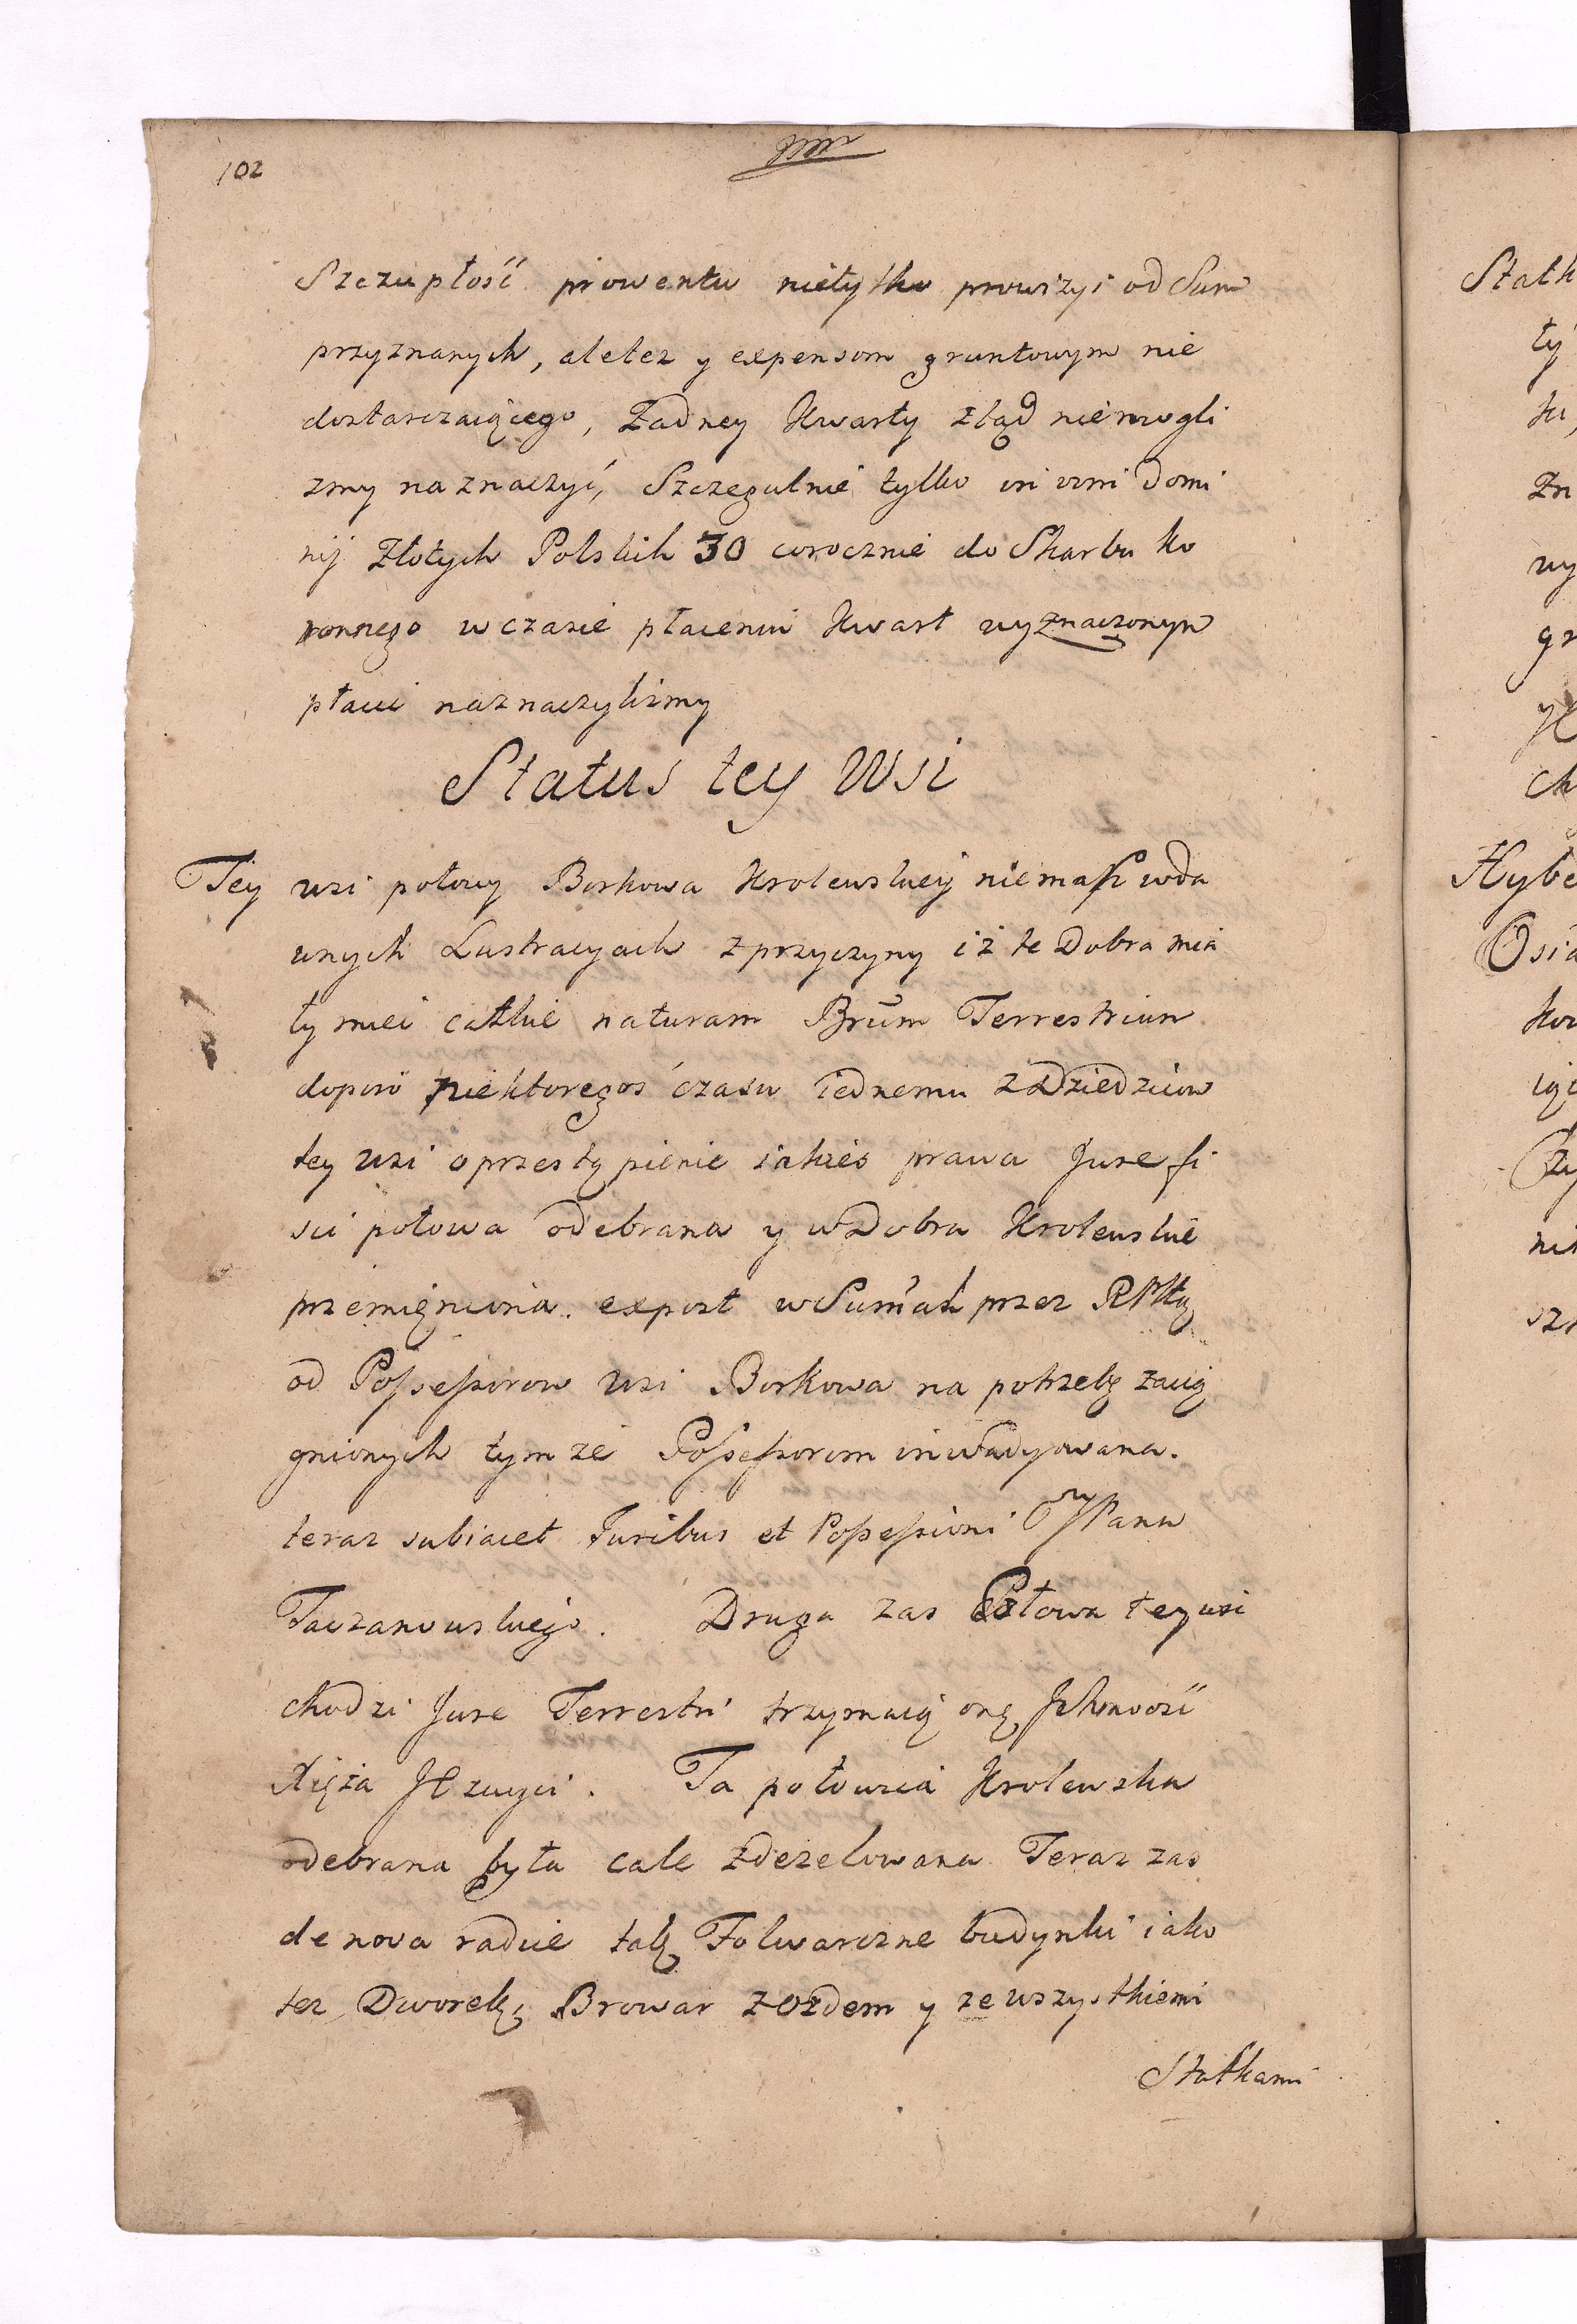 102
Szczupłość prowentu nietylko prowizyi od Sum
przyznanych, aletez y expensom gruntowym nie
dostarczaiącego, Zadney Kwarty ztąd niemogli
zmy naznaczyć, Szczegulnie tylko in vim domi
nij Złotych Polskich 30 corocznie do Skarbu Ko
ronnego wczasie płacenia Kwart wyznaczonym
płacić naznaczylismy
Status tey Wsi
Tey wsi połowy Borkowa Krolewskiey niemasz wda
wnych Lustracyach zprzyczyny iż te Dobra mia
ły mieć całkie naturam Brūm Terrestrium
dopiro niektoregoś czasu iednemu z Dziedzicow
tey wsi oprzestąpienie iakies prawa Jure fi
sci połowa odebrana y w Dobra Krolewskie
przemięniona. expost w Sumach przez RPltą
od Possessorow wsi Borkowa na potrzebę zacią
gnionych tymże Possessorom inwadyowana.
teraz subiacet Juribus et Possessioni Pana
Taczanowskiego. Druga zas Połowa tey wsi
chodzi Jure Terrestri trzymaią onę Jchmość
Xięża JEzuyci. Ta połowica Krolewska
odebrana była cale zdezelowana Teraz zas
de nova radice tak Folwarczne budynki iako
tez Dworek, Browar zozdem y ze wszystkiemi
Statkami
Statk
ty
ku,
zn
wy
gr
K
ch
Hybe
Osia
kow
iąc
ni
sz